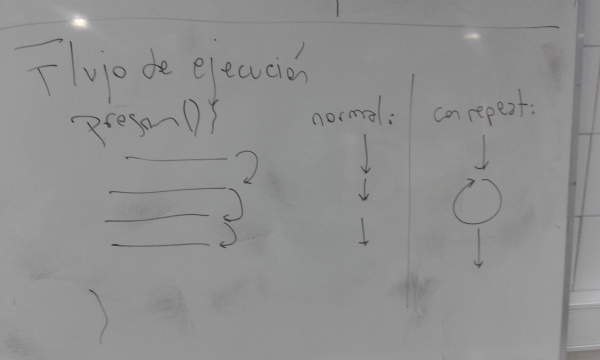 Flujo de ejecución
program(){
normal:
con repeat:
}